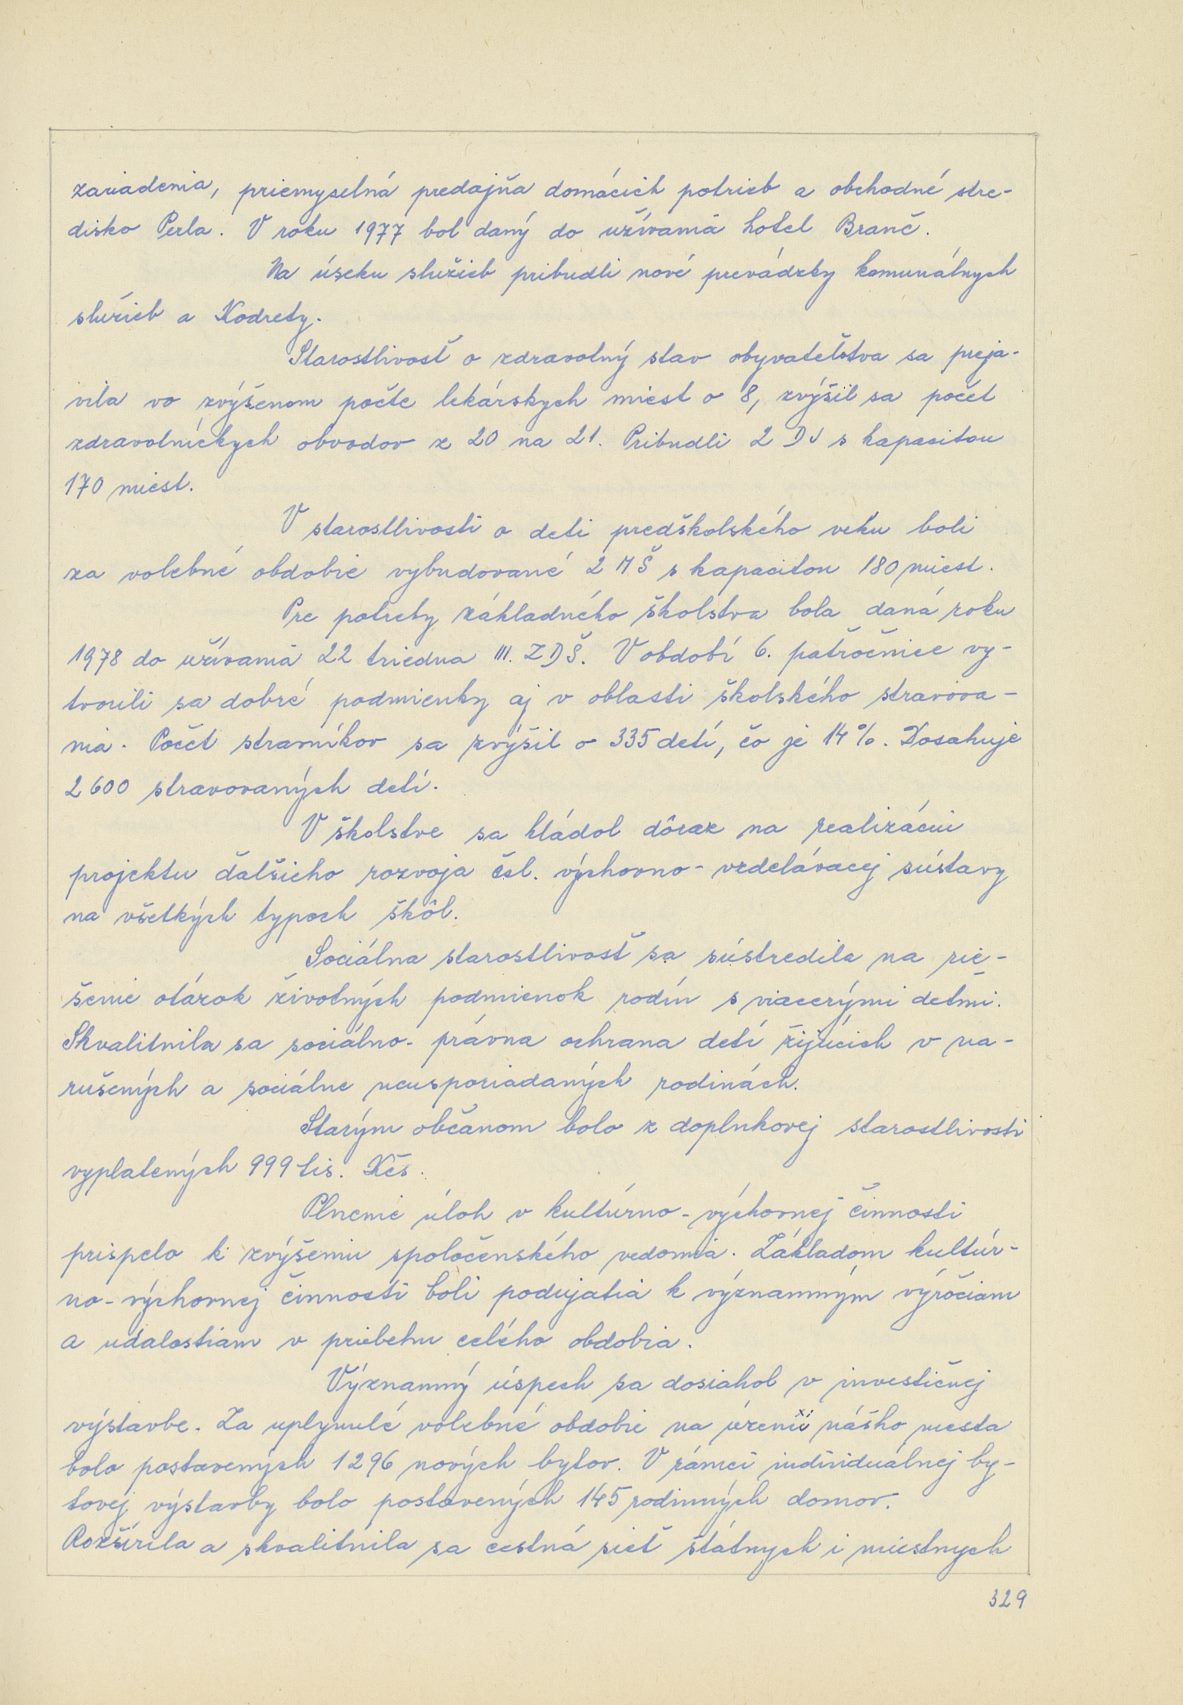 zariadenia, priemyselná predajňa domácich potrieb a obchodné stre-
disko Perla. V roku 1977 bol daný do užívania hotel Branč.
Na úseku služieb pribudli nové prevádzky komunálnych
služieb a Kodrety.
Starostlivosť o zdravotný stav obyvateľstva sa preja-
vila vo zvýšenom počte lekárskych miest o 8, zvýšil sa počet
zdravotníckych obvodov z 20 na 21. Pribudli 2 DJ s kapacitou
170 miest.
V starostlivosti o deti predškolského veku boli
za volebné obdobie vybudované 2 MŠ s kapacitou 180 miest.
Pre potreby základného školstva bola daná roku
1978 do užívania 22 triedna III. ZDŠ. V období 6. päťročnice vy-
tvorili sa dobré podmienky aj v oblasti školského stravova-
nia. Počet stravníkov sa zvýšil o 335 detí, čo je 14%. Dosahuje
2600 stravovaných detí.
V školstve sa kládol dôraz na realizáciu
projektu ďalšieho rozvoja čsl. výchovno-vzdelávacej sústavy
na všetkých typoch škôl.
Sociálna starostlivosť sa sústredila na rie-
šenie otázok životných podmienok rodín s viacerými deťmi.
Skvalitnila sa sociálno-právna ochrana detí žijúcich v na-
rušených a sociálne neusporiadaných rodinách.
Starým občanom bolo z doplnkovej starostlivosti
vyplatených 999 tis. Kčs.
Plnenie úloh v kultúrno-výchovnej činnosti
prispelo k zvýšeniu spoločenského vedomia. Základom kultúr-
no-výchovnej činnosti boli podujatia k významným výročiam
a udalostiam v priebehu celého obdobia.
Významný úspech sa dosiahol v investičnej
výstavbe. Za uplynulé volebné obdobie na území nášho mesta
bolo postavených 1296 nových bytov. V rámci individuálnej by-
tovej výstavby bolo postavených 145 rodinných domov.
Rozšírila a skvalitnila sa cestná sieť štátnych i miestnych
329